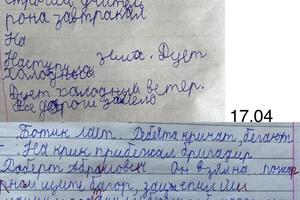 строгий учитель
рона завтракал
На
Наступила зима. Дует
холодный
Дует холодный ветер.
Все дороги замело
17.04
Ботик лает. Ребята кричат, бегают
- На крик прибежал бригадир
Роберт Абрамович Он взял на пожар
ном щите багор, зацепил им